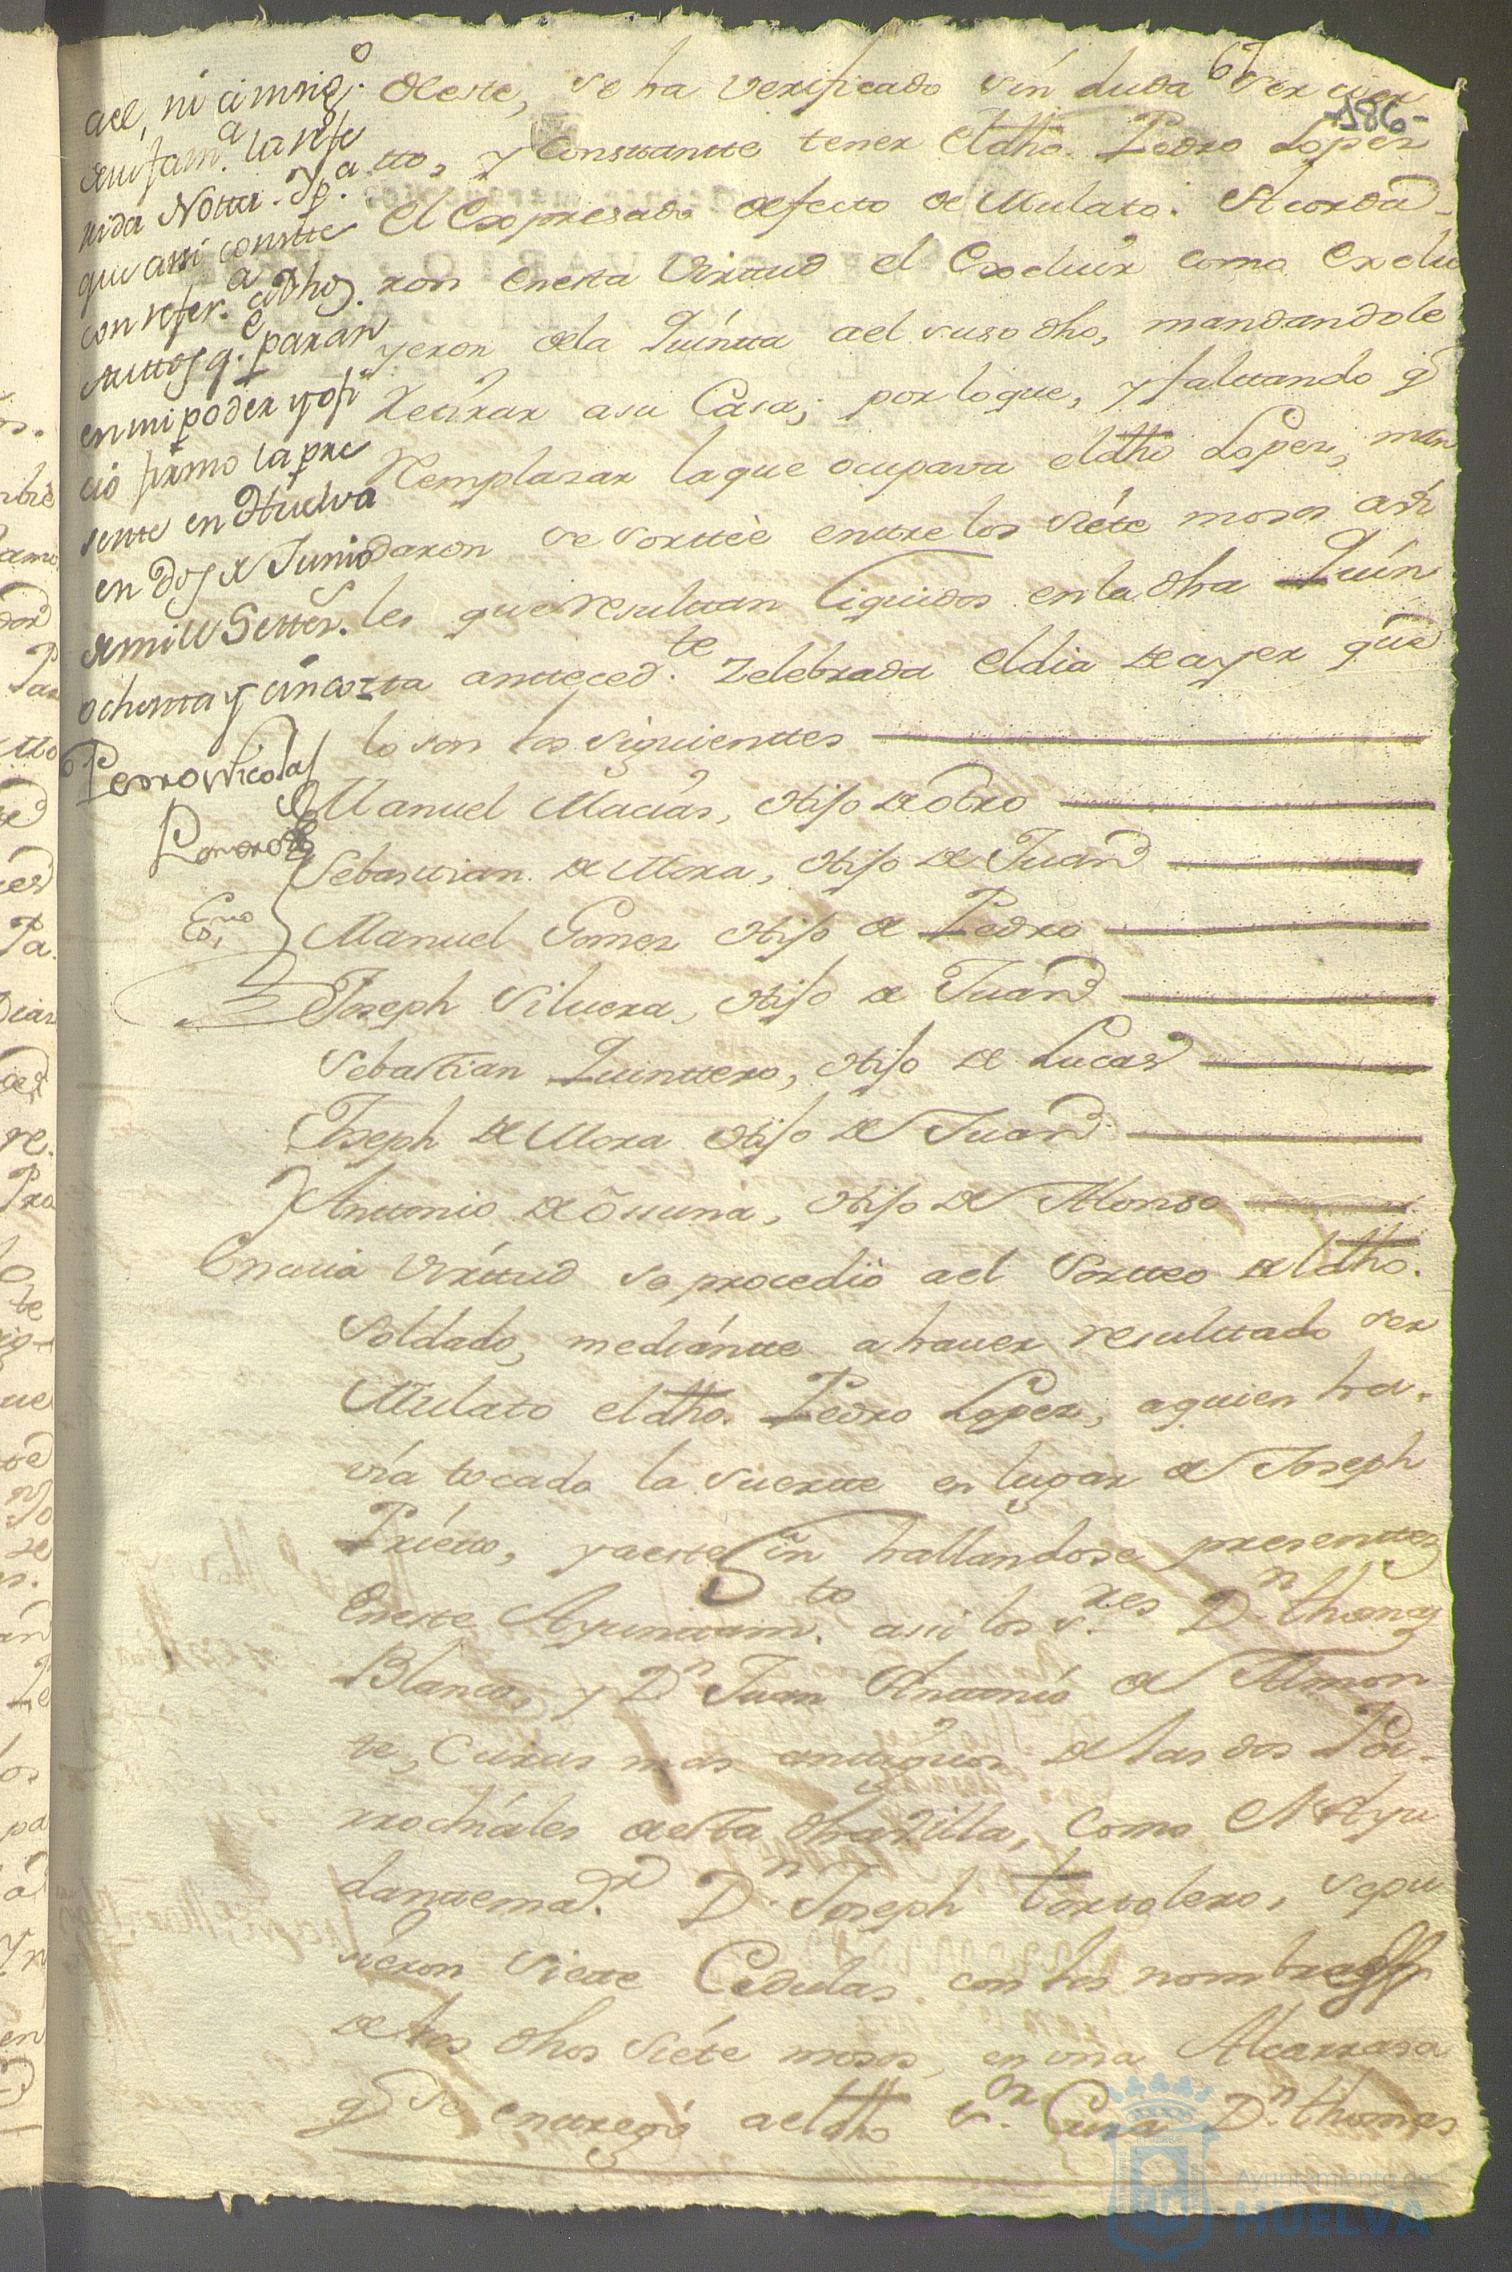 67
186-
ael, ni a insig.º
su fam.ª la refe
rida Notta. Y p.ª
que assi constte
con refer.ª a dhos
Auttos q.e paran
en mi poder y ofi
cio firmo la pre
sente en Huelva
en dos de Junio
de mill Settez.
ochenta y cinco
Pedro Nicolas
Romero
Ess.no
deste, se ha verificado sin duda ser cier
tto, y Constantte tener el dho. Pedro Lopez
el Expresado defecto de Mulato. Acorda-
ron en esta Virttud el Excluir como Exclu
yeron de la Quintta ael suso dho, mandandole
Retirar a su Casa; por lo que, y faltando q.e
Remplasar la que ocupava el dho Lopez, man
daron se sorttèe enttre los siéte mosos
les que resulttan liquidos en la dha Quin
tta antteced.te Zelebrada el dia de ayer que
lo son los siguienttes
Manuel Macias, Hijo de otro
Sebasttian de Mora, Hijo de Juan
Manuel Gomez Hijo de Pedro
Joseph Siluera, Hijo de Juan
Sebastian Quinttero, Hijo de Lucas
Joseph de Mora Hijo de Juan
Y Anttonio de Ossuna, Hijo de Alonso
En cuia Virttud se procediò ael Sortteo del dho.
Soldado, mediántte a hauer resulttado ser
Mulato el dho. Pedro Lopez, a quien ha-
vía tocado la suertte en lugar de Joseph
Priétto, y a este fin hallandose presenttes
En este Ayunttam.to asi los s.res D.n thomas
Blanco, y D.n Juan Anttonio de Almon
te, Curas mas anttiguos de las dos Pa-
rrochiáles de esta dha Villa, como el Ayu
danttema.r D.n Joseph tortolero, se pu
sieron Siette Cedulas con los nombres
de los dhos siéte mosos, en una Alcarrasa
q.e se enttregó ael dho s.or Cura D.n thomas
Ayuntamiento de
HUELVA